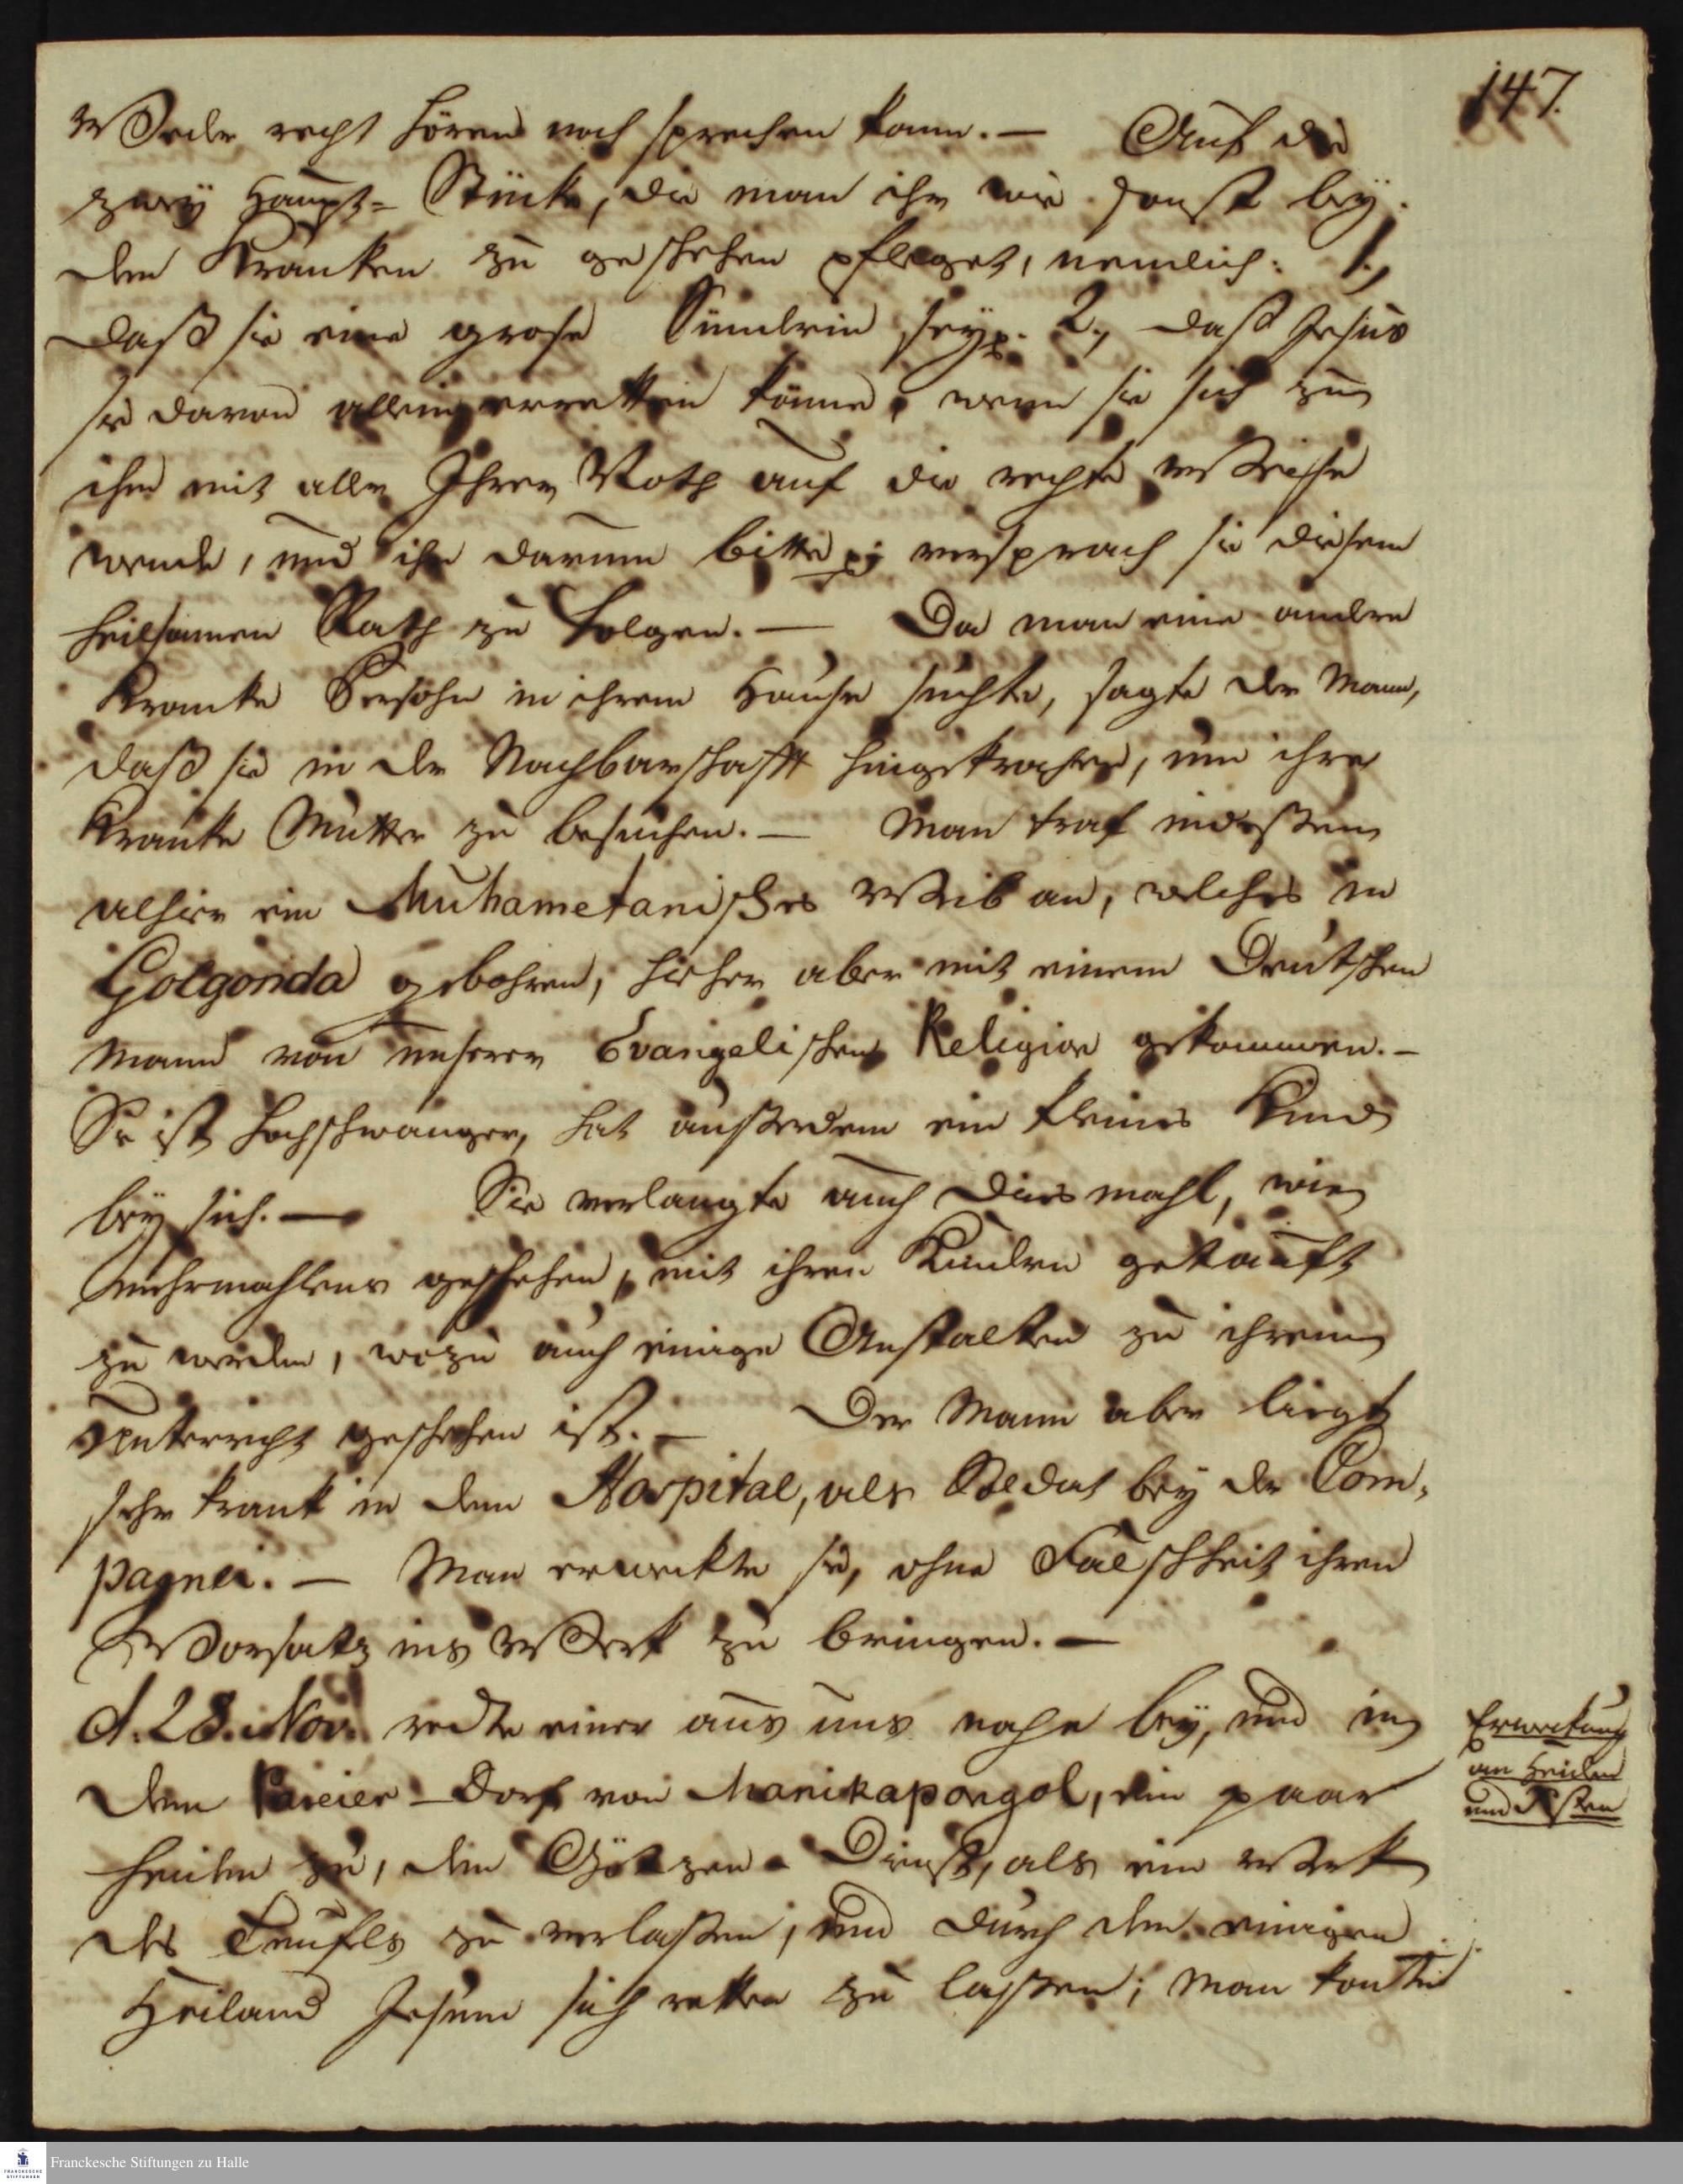 147.
Weder recht hören noch sprechen kann. — Auf die
zweÿ Haupt-Stücke, die man ihr wie sonst beÿ
den Krancken zu geschehen pfleget, nemlich: 1.,
daß sie eine grose Sünderin seÿ p. 2., daß Jesus
sie davon allein erretten könne, wenn sie sich zu
ihm mit aller Ihrer Noth auf die rechte Weisse
wende, und ihn darum bitte p; versprach sie diesem
heilsamen Rath zu folgen. — Da man eine andere
Krancke Persohn in ihrem Hause suchte, sagte der Mann,
daß sie in der Nachbarschafft hingekrochen, um ihre
Krancke Mutter zu besuchen. — Man traf indeßen
alhier ein Muhametanisches Weib an, welches in
Golgonda gebohren, hieher aber mit einem Deutschen
Mann von unserer Evangelischen Religion gekommen. —
Sie ist hochschwanger, hat außerdem ein kleines Kind
beÿ sich. — Sie verlangte auch diesmahl, wie
mehrmahlens geschehen, mit ihren Kindern getauft
zu werden, wozu auch einige Anstalten zu ihrem
Unterricht geschehen ist. — Der Mann aber liegt
sehr krank in dem Hospital, als Soldat beÿ der Com-
pagnei. — Man erweckte sie, ohne Falschheit ihren
Vorsatz ins Werk zu bringen. —
d. 28. Nov. redte einer aus uns nahe beÿ, und in
dem Pareier-Dorf von Manikapongol, ein paar
Heiden zu, den Götzen-Dienst, als ein Werk
des Teufels zu verlaßen, und durch den einigen
Heiland Jesum sich retten zu laßen; man konte
Erweckung
an Heiden
und